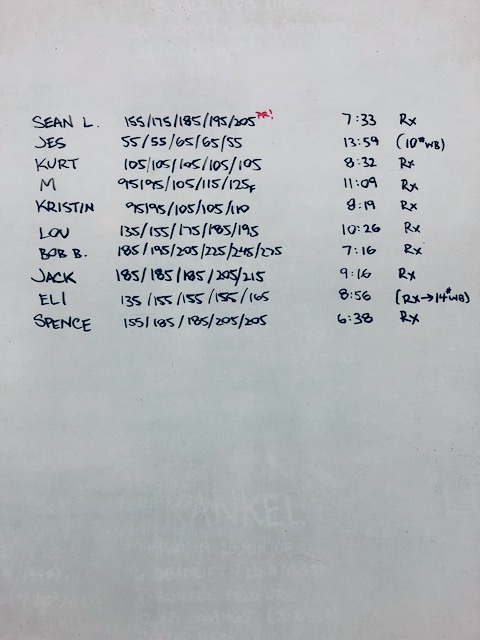 SEAN L. 155/175/185/195/205 PR! 7:33 Rx
JES 55/55/65/65/55 13:59 (10# WB)
KURT 105/105/105/105/105 8:32 Rx
M 95/95/105/115/125F 11:09 Rx
KRISTIN 95/95/105/105/110 8:19 Rx
LOU 135/155/175/185/195 10:26 Rx
BOB B. 185/195/205/225/245/275 7:16 Rx
JACK 185/185/185/205/215 9:16 Rx
ELI 135/155/155/155/165 8:56 (RX→14# WB)
SPENCE 155/185/185/205/205 6:38 Rx
RANKEL